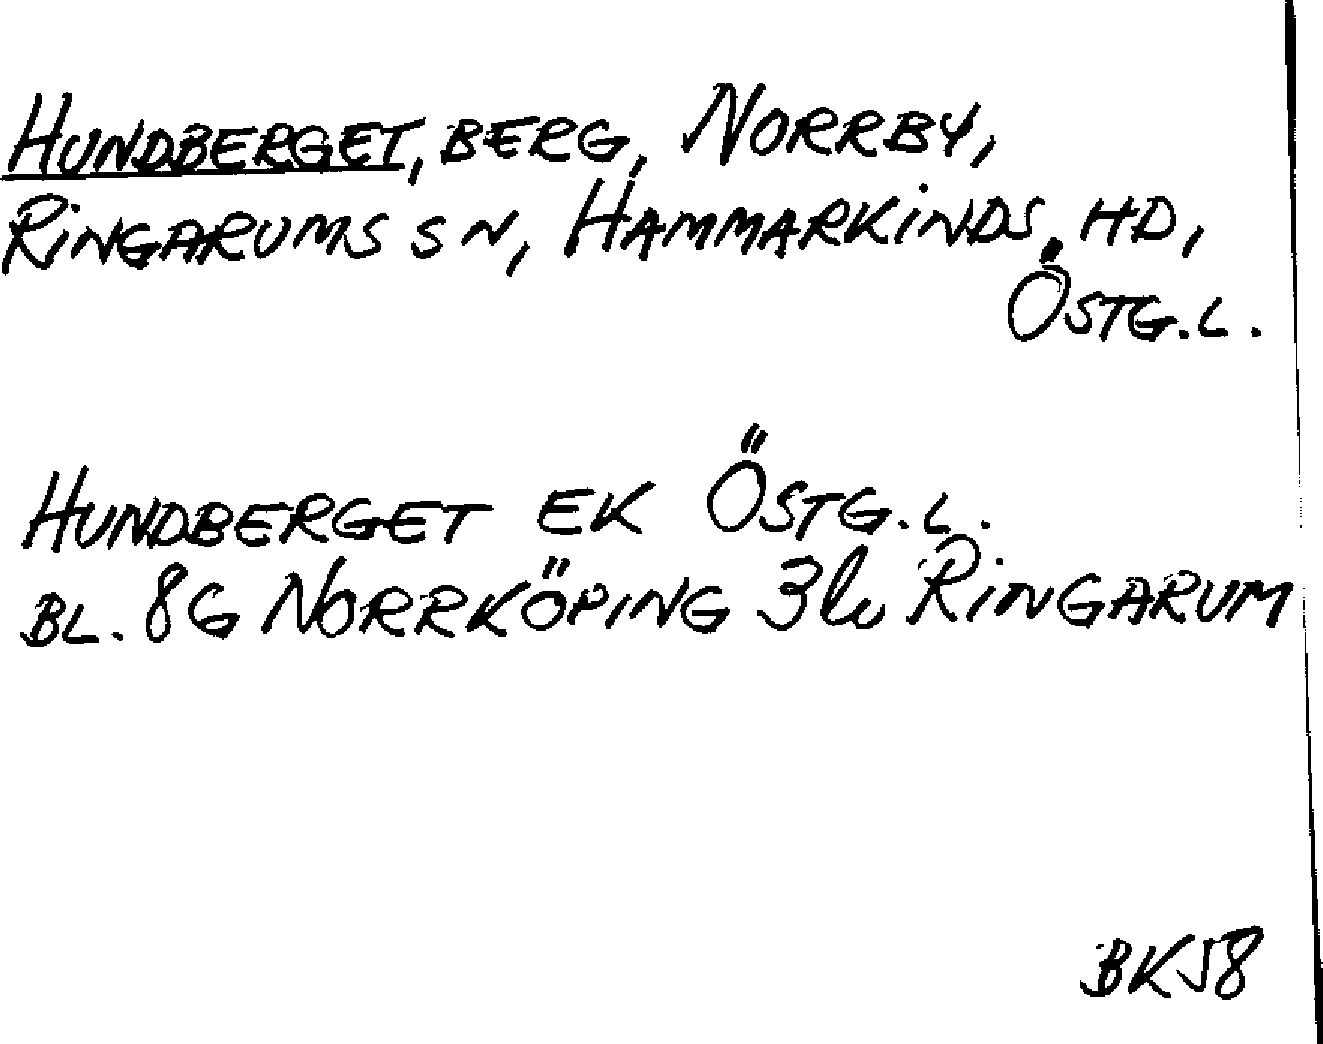 HUNDBERGET, BERG, NORRBY,
RINGARUMS SN, HAMMARKINDS HD,
ÖSTG.L.
HUNDBERGET EK ÖSTG.L.
BL. 8G NORRKÖPING 3b RINGARUM
BK58